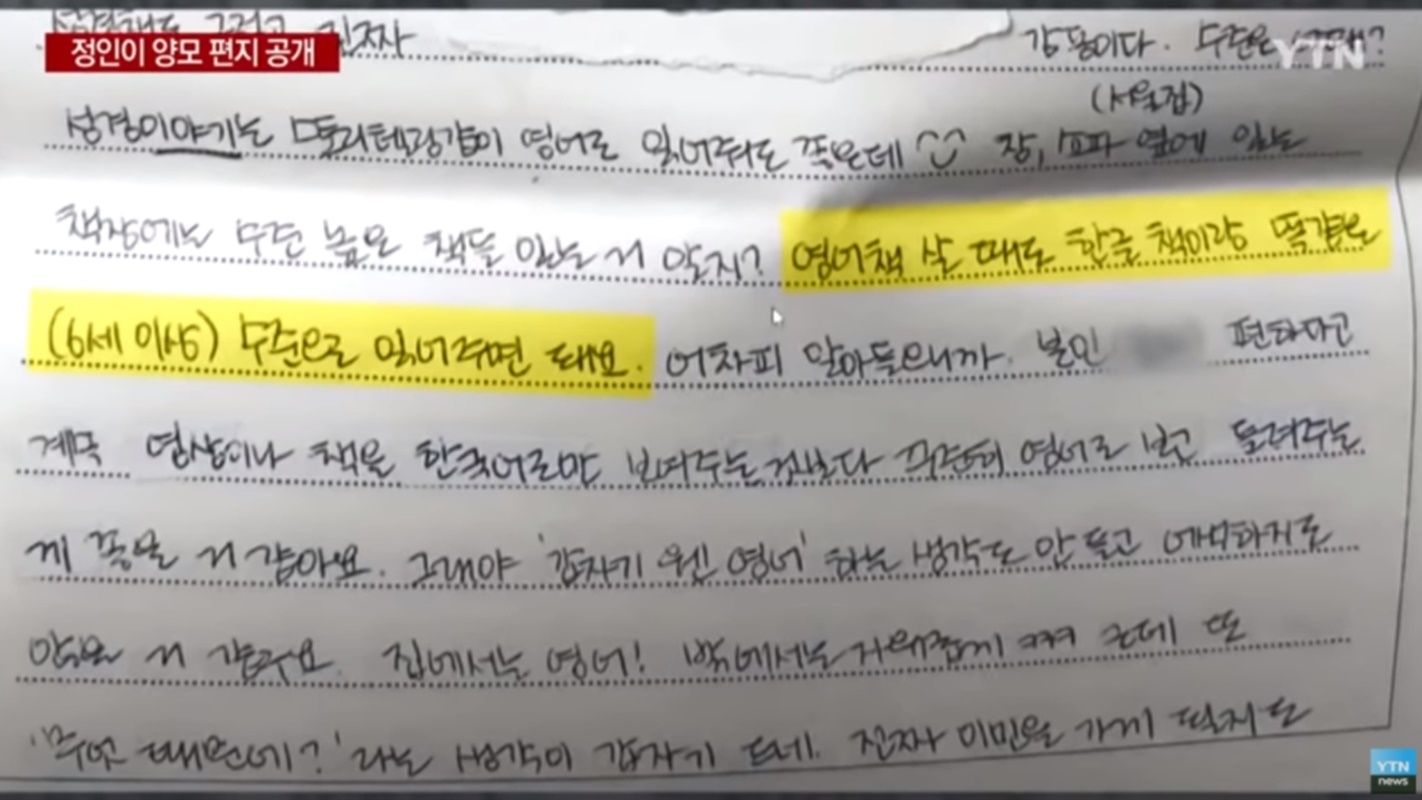 정인이 양모 편지 공개
YTN
진짜
감동이다. 수준은 어때?
(서울집)
성경이야기는 스토리텔링같이 영어로 읽어줘도 좋은데 장, 소파 옆에 있는
책장에는 수준 높은 책들 있는 거 알지? 영어책 살 때도 한글 책이랑 똑같은
(6세 이상) 수준으로 읽어주면 돼요. 어차피 알아들으니까. 본인 편하다고
계속 영상이나 책을 한국어로만 보여주는것보다 꾸준히 영어로 보고 들려주는
게 좋을 거 같아요. 그래야 '갑자기 웬 영어' 하는 생각도 안 들고 어색하지도
않을 거 같구요. 집에서는 영어! 밖에서는 자유롭게 ㅋㅋ 근데 또
'무엇 때문에?' 라는 생각이 갑자기 드네. 진짜 이민을 가게 될지도
YTN
news